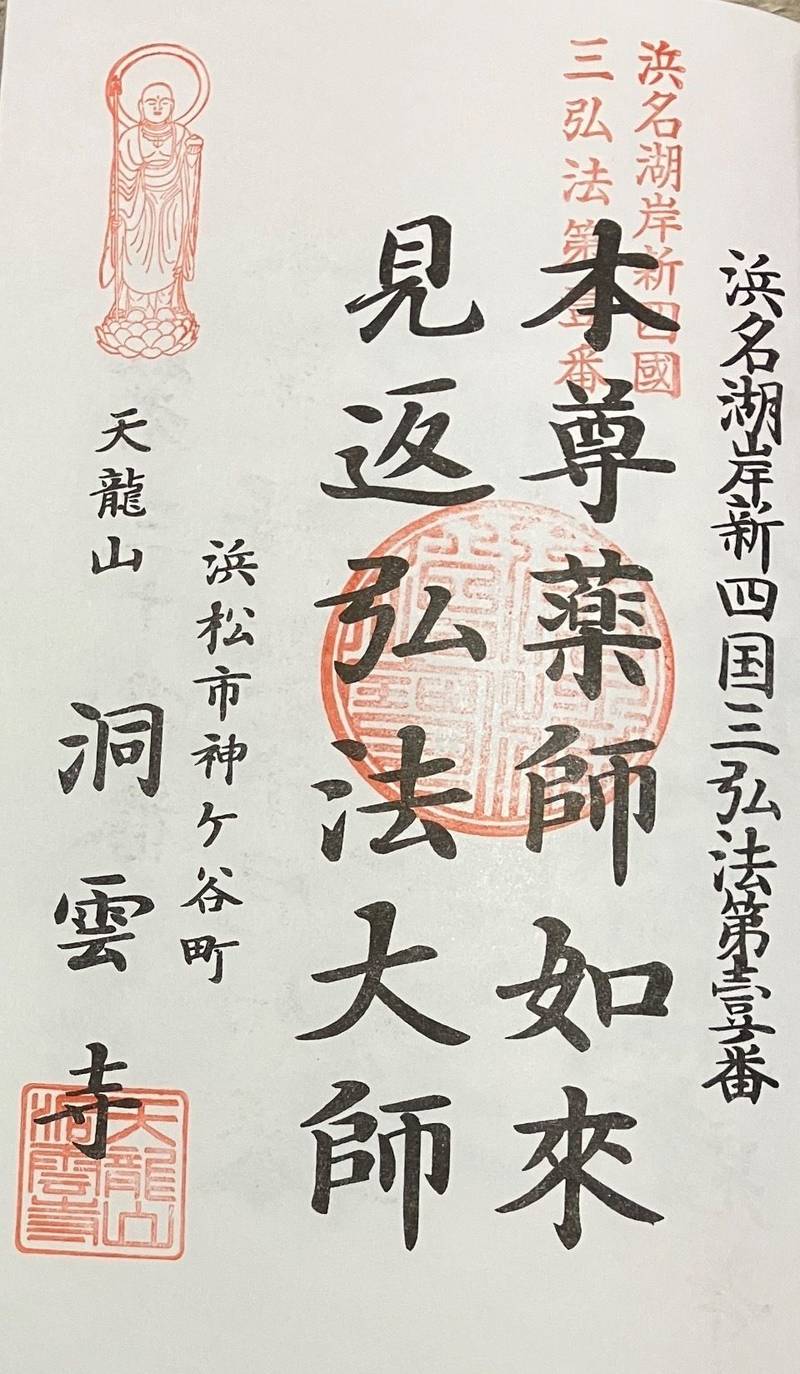 浜名湖岸新四国三弘法第壹番
浜名湖岸新四國
三弘法第壹番
本尊薬師如來
見返弘法大師
浜松市神ケ谷町
天龍山 洞雲寺
天龍山
洞雲寺